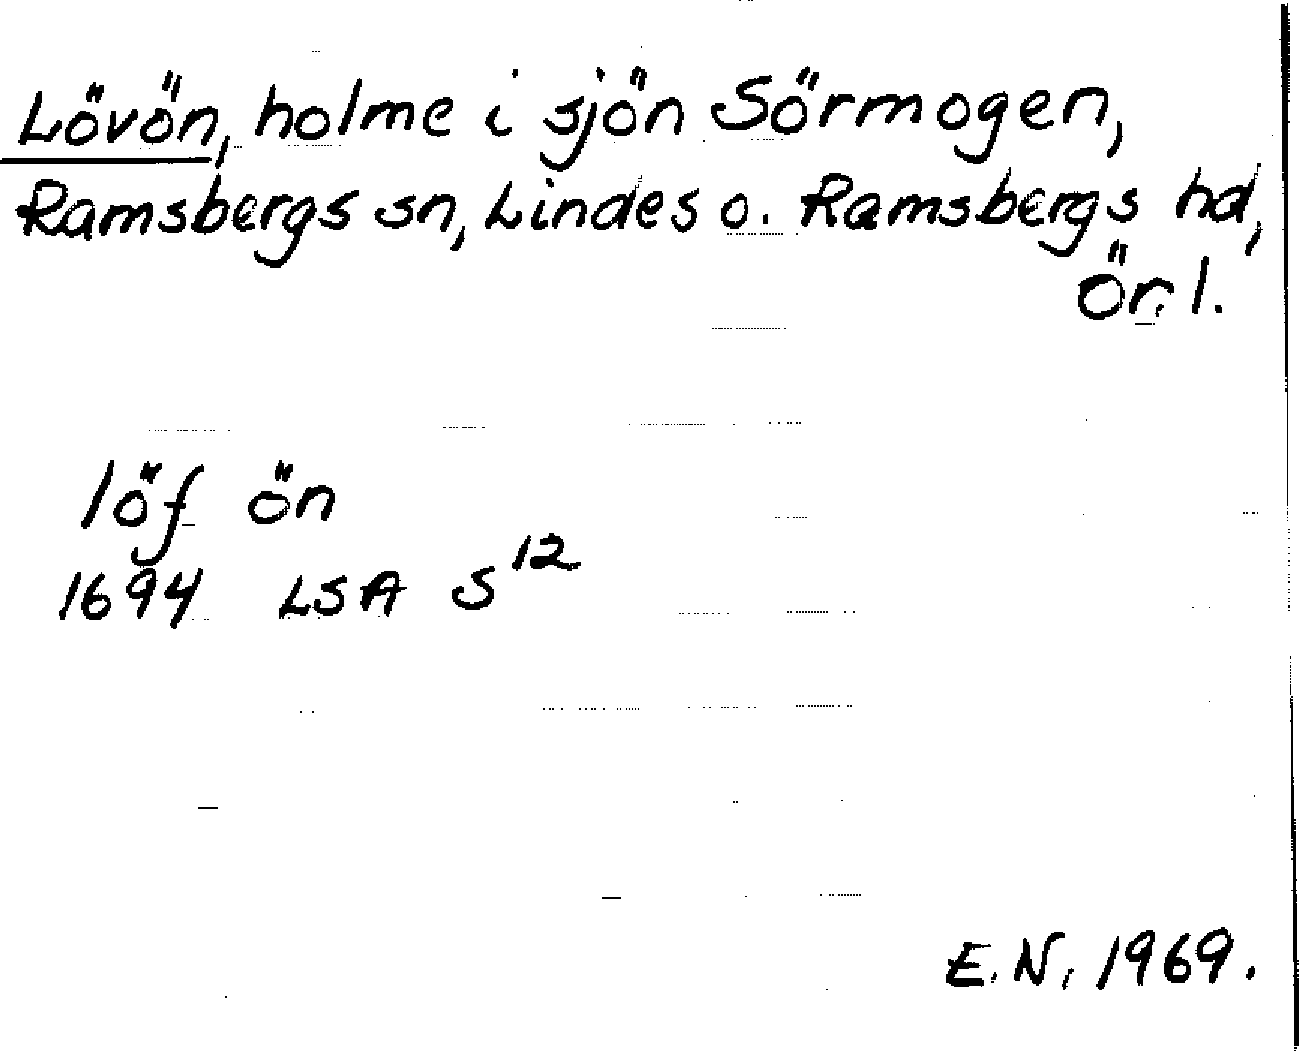 Lövön, holme i sjön Sörmogen,
Ramsbergs sn, Lindes o. Ramsbergs hd,
Ör. l.
löf ön
1694 LSA S¹²
E. N. 1969.